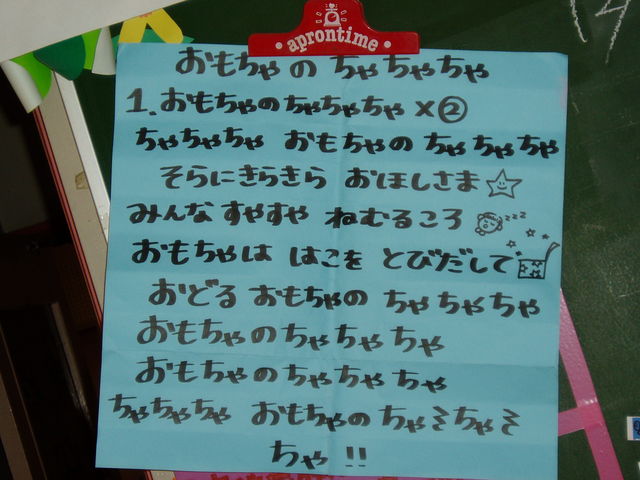 aprontime
おもちゃの ちゃちゃちゃ
1. おもちゃのちゃちゃちゃ ×②
ちゃちゃちゃ おもちゃの ちゃちゃちゃ
そらにきらきら おほしさま
みんな すやすや ねむるころ zzz
おもちゃは はこを とびだして
おどる おもちゃの ちゃちゃちゃ
おもちゃのちゃちゃちゃ
おもちゃのちゃちゃちゃ
ちゃちゃちゃ おもちゃの ちゃそちゃそ
ちゃ!!